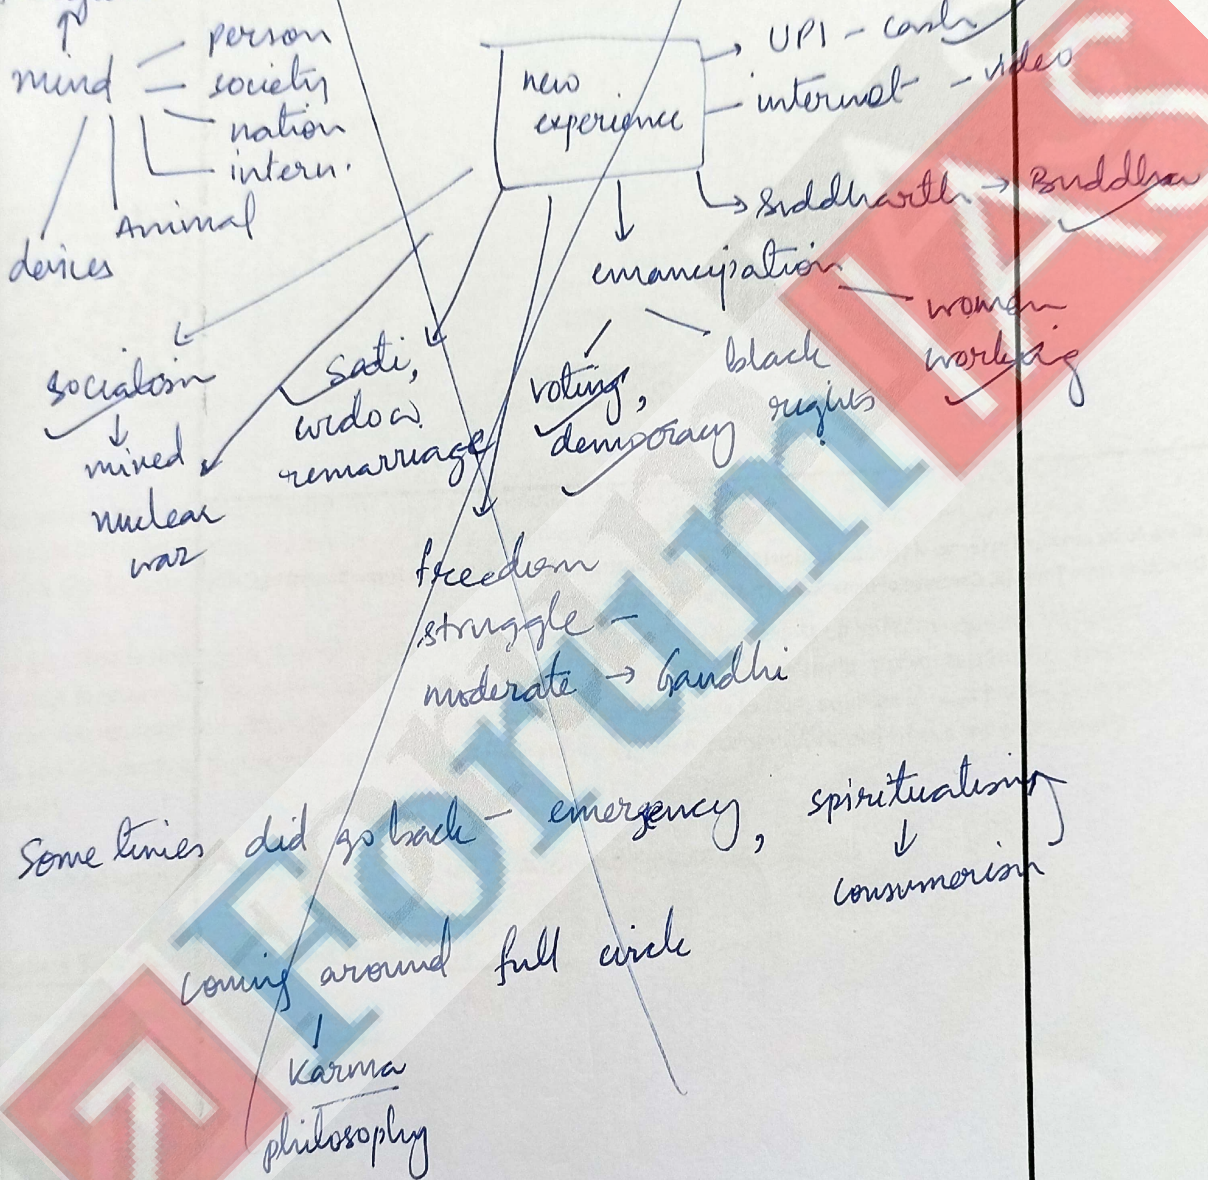 mind
person
society
nation
intern.
Animal
devices
new
experience
UPI - cash
internet - video
Siddharth → Buddha
emancipation
women
working
voting,
democracy
black
rights
Sati,
widow
remarriage
socialism
↓
mixed,
nuclear
war
freedom
struggle -
moderate → Gandhi
Sometimes did go back - emergency, spiritualising
↓
consumerism
coming around full circle
Karma
philosophy
Forum IAS